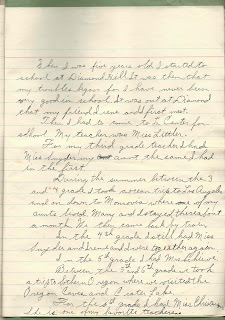 When I was five years old I started to
school at Diamond Hill. It was then that
my troubles began for I have never been
very good in school. It was out at Diamond
that my friend Irene and I first met.
Then I had to come to Center for
school. My teacher was Miss Littler.
For my third grade teacher I had
Miss Snyder my aunt the same I had
in the first.
During the summer between the 3
and 4 grade I took a ocean trip to Los Angeles
and on down to Monrovia where one of my
aunts lived. Mary and I stayed there about
a month. We then came back by train.
In the 4th grade I still had Miss
Snyder and Irene and I were together again.
In the 5th grade I had Miss
Between the 5th and 6th grade we took
a trip to Southern Oregon where we visited the
Oregon Caves and Crater Lake.
For the 6th grade I had Miss
She is one of my favorite teachers.